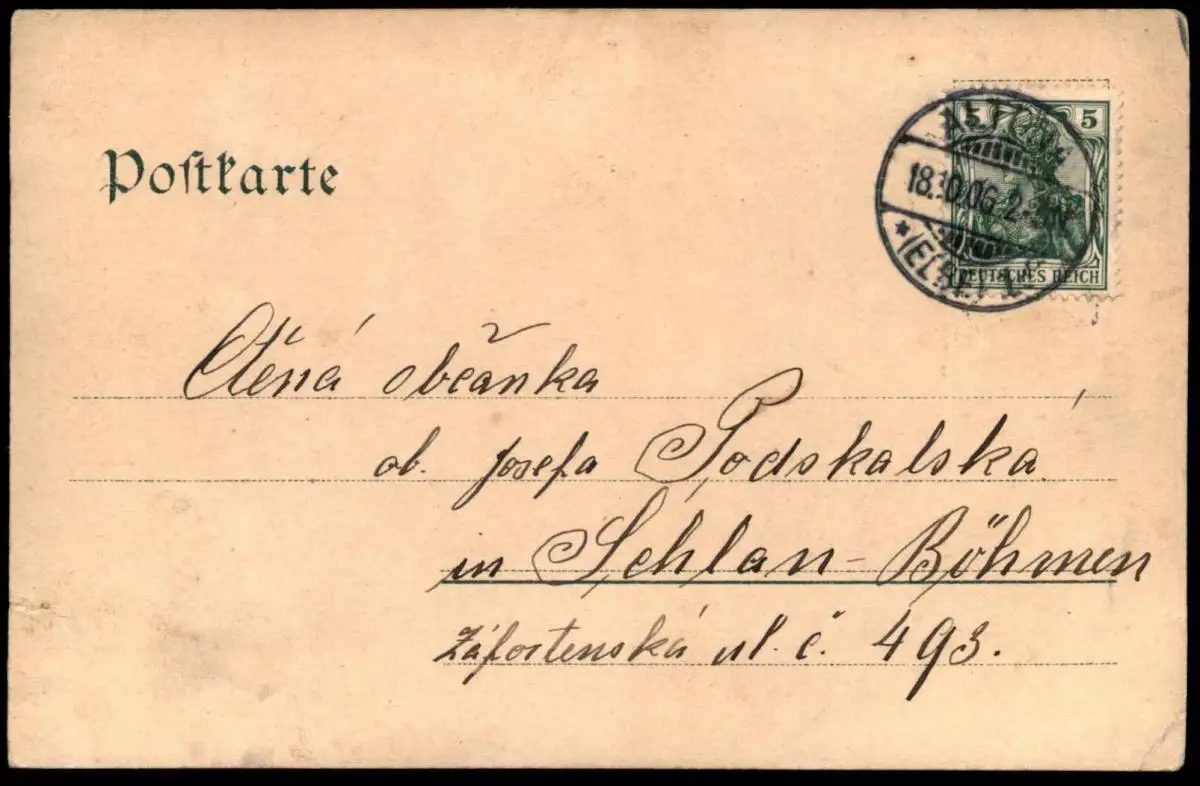 Postkarte
5 5
18.10.06. 2-3N
* (ELBE) 1.
DEUTSCHES REICH
Ctěná občanka
ob. Josefa Podskalská
in Schlan-Böhmen
Záfortenská ul. č. 493.